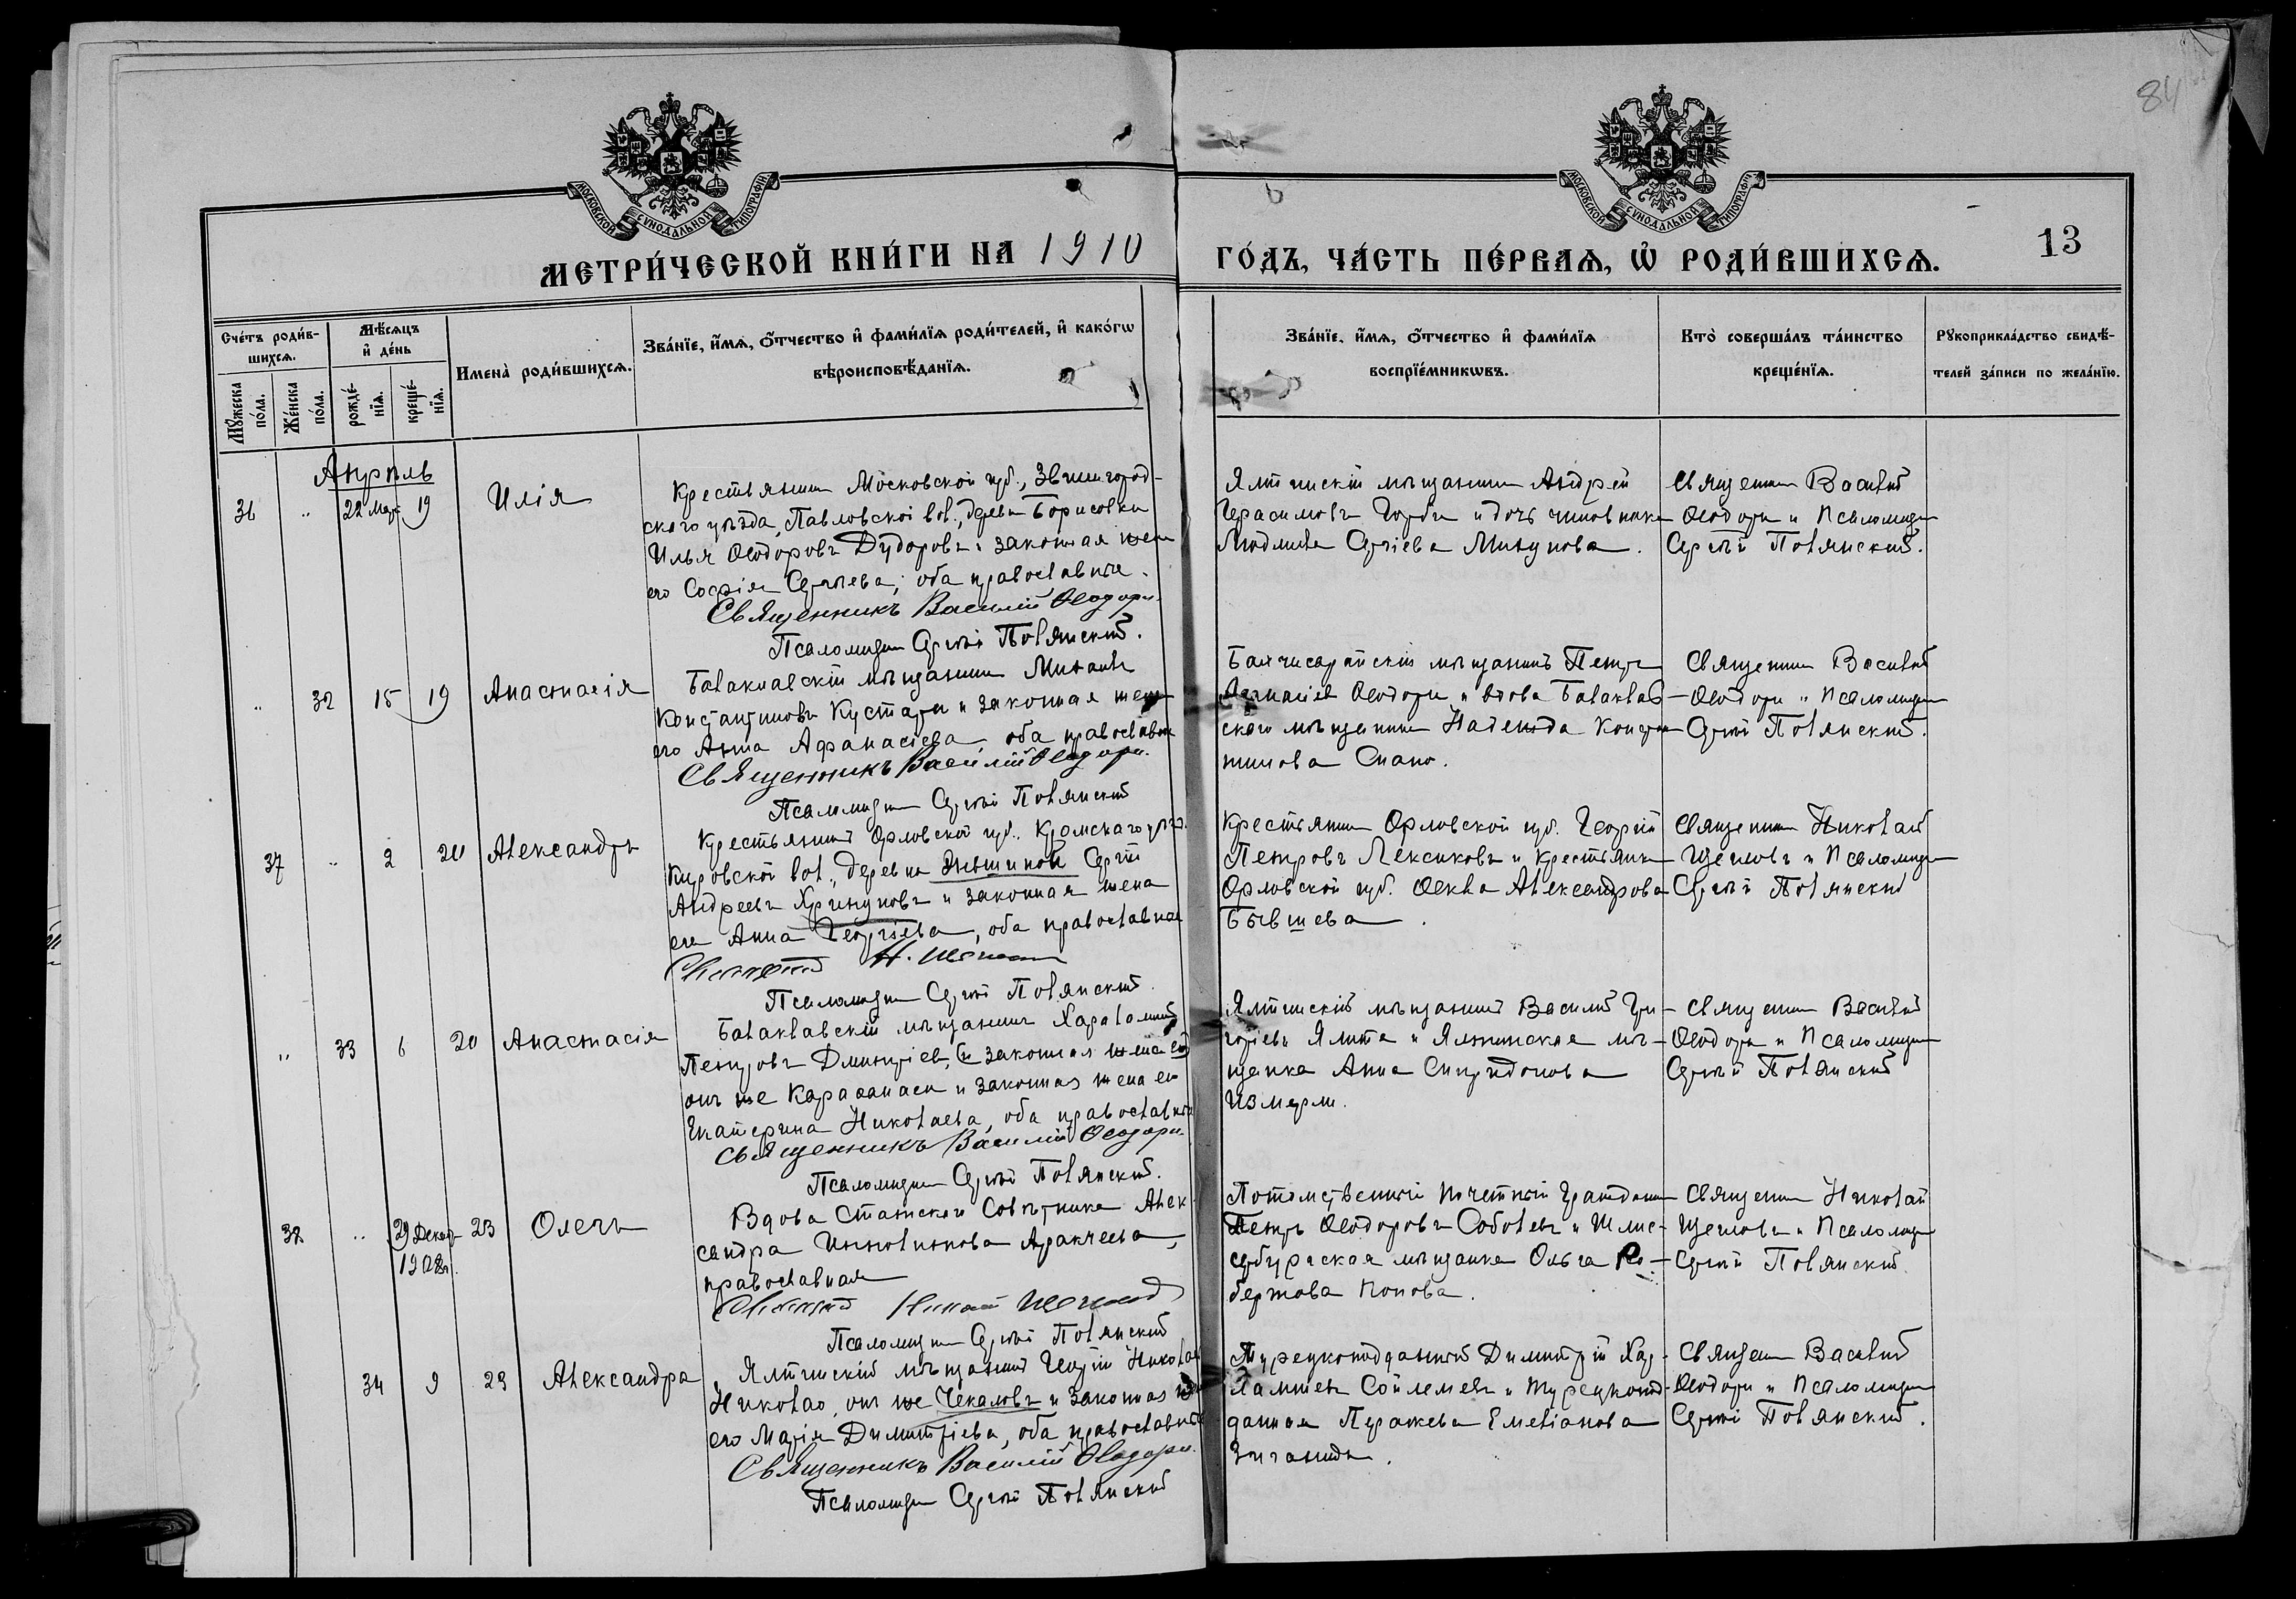 84
МОСКОВСКОЙ СѴНОДАЛЬНОЙ ТИПОГРАФІИ
МОСКОВСКОЙ СѴНОДАЛЬНОЙ ТИПОГРАФІИ
МЕТРИ́ЧЕСКОЙ КНИ́ГИ НА 1910
ГО́ДЪ, ЧА́СТЬ ПЕ́РВАѦ, Ѽ РОДИ́ВШИХСѦ.
13
Сче́тъ роди́в-
шихсѧ.
Мꙋ́жеска по́ла.
Же́нска по́ла.
Мѣ́сѧцъ
и҆ де́нь
рожде́-
нїѧ.
креще́-
нїѧ.
Имена̀ роди́вшихсѧ.
Зва́нїе, и҆́мѧ, ѻ҆́тчество и҆ фами́лїѧ роди́телей, и҆ како́гѡ
вѣроисповѣ́данїѧ.
Зва́нїе, и҆́мѧ, ѻ҆́тчество и҆ фами́лїѧ
воспрїе́мникѡвъ.
Кто̀ соверша́лъ та́инство
креще́нїѧ.
Рꙋкоприкла́дство свидѣ́-
телей за́писи по жела́нїю.
Апрѣль
36 " 22 Мар. 19 Илія
Крестьянинъ Московской губ., Звенигород-
скаго уѣзда, Павловской вол., дерев. Борисовки
Илья Ѳеодоровъ Дудоровъ и законная жена
его Софія Сергѣева, оба православные.
Священникъ Василій Ѳеодори.
Псаломщикъ Сергѣй Полянскій.
Ялтинскій мѣщанинъ Андрей
Герасимовъ и дочь чиновника
Людмила Сергіева
Священникъ Василій
Ѳеодори и Псаломщикъ
Сергѣй Полянскій.
" 32 15 19 Анастасія
Балаклавскій мѣщанинъ Михаилъ
Константиновъ Кустари и законная жена
его Анна Афанасіева, оба православные
Священникъ Василій Ѳеодори.
Псаломщикъ Сергѣй Полянскій
Бахчисарайскій мѣщанинъ Петръ
Ѳеодори и вдова Балаклав-
скаго мѣщанина Надежда Констан-
тинова Спано.
Священникъ Василій
Ѳеодори и Псаломщикъ
Сергѣй Полянскій.
37 " 2 20 Александръ
Крестьянинъ Орловской губ. Кромскаго уѣзд.
вол., деревни Сергѣй
Андреевъ и законная жена
его Анна Георгіева, оба православные
Псаломщикъ Сергѣй Полянскій.
Крестьянинъ Орловской губ. Георгій
Петровъ Лексиковъ и крестьянка
Орловской губ. Ѳекла Александрова
Бывшева.
Священникъ Николай
Щегловъ и Псаломщикъ
Сергѣй Полянскій
" 33 6 20 Анастасія
Балаклавскій мѣщанинъ Харалампій
Петровъ Дмитріевъ, (и законная жена его)
онъ же и законная жена его
Екатерина Николаева, оба православные
Священникъ Василій Ѳеодори.
Псаломщикъ Сергѣй Полянскій.
Ялтинскій мѣщанинъ Василій Гри-
горіевъ Ялита и Ялтинская мѣ-
щанка Анна Спиридонова
Измерли.
Священникъ Василій
Ѳеодори и Псаломщикъ
Сергѣй Полянскій
38 " 29 Декаб. 1908 г. 23 Олегъ
Вдова Статскаго Совѣтника Алек-
сандра Аракчеева,
православная
Псаломщикъ Сергѣй Полянскій
Потомственный почетный гражданинъ
Петръ Ѳеодоровъ Соболевъ и Шлис-
сельбургская мѣщанка Ольга Ро-
бертова Попова.
Священникъ Николай
Щегловъ и Псаломщикъ
Сергѣй Полянскій
" 34 9 23 Александра
Ялтинскій мѣщанинъ Георгій Николаевъ
Николао, онъ же Чекаловъ и законная жена
его Марія Димитріева, оба православные
Священникъ Василій Ѳеодори.
Псаломщикъ Сергѣй Полянскій
Турецкоподданный Димитрій Хар-
лампіевъ и турецкопод-
данная Емеліанова
Священникъ Василій
Ѳеодори и Псаломщикъ
Сергѣй Полянскій.